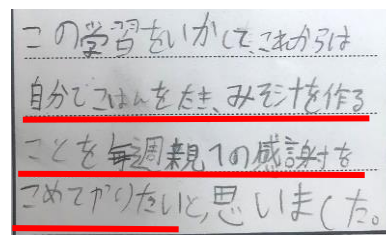 この学習をいかして、これからは
自分でごはんをたき、みそ汁を作る
ことを毎週親への感謝を
こめてやりたいと、思いました。